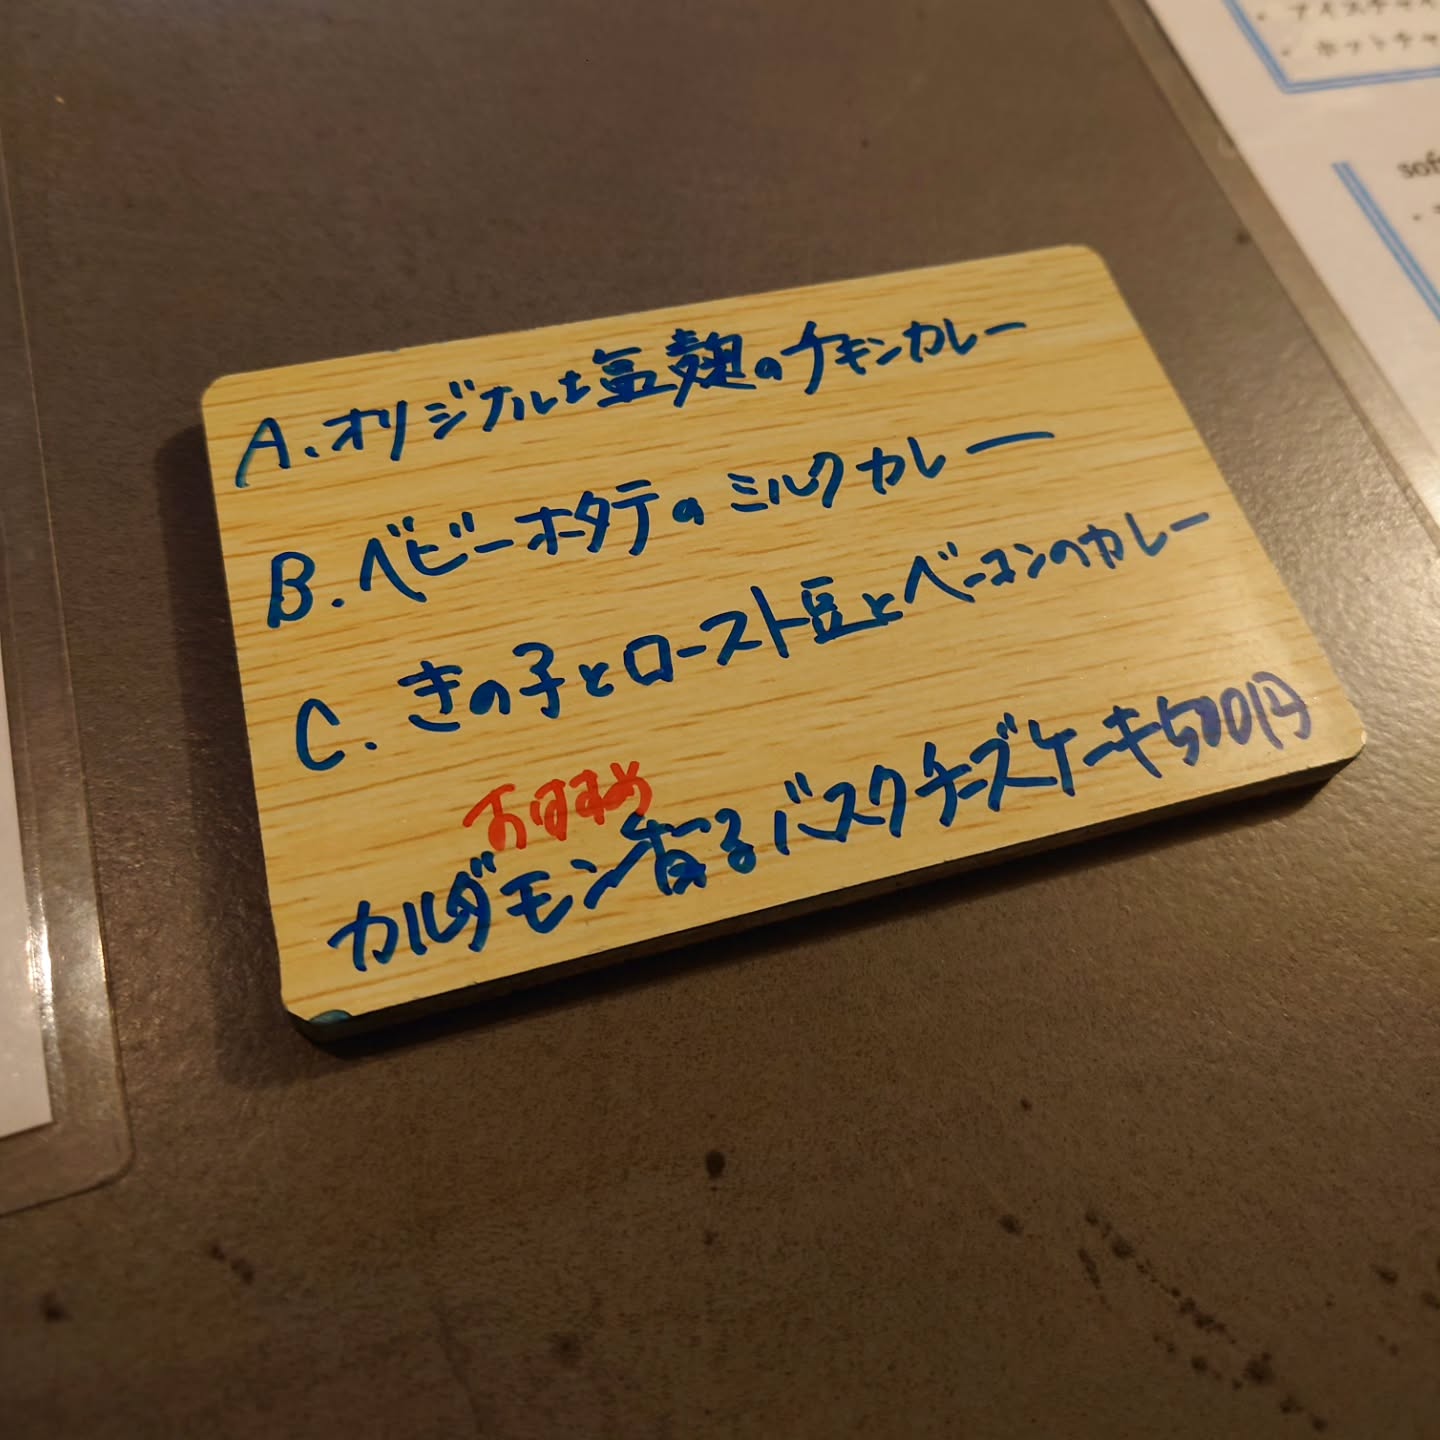 A.オリジナル塩麹のチキンカレー
B.ベビーホタテのミルクカレー
C.きの子とロースト豆とベーコンのカレー
おすすめ
カルダモン香るバスクチーズケーキ500円
・アイスチャイ
✓ ホットチャ
sof